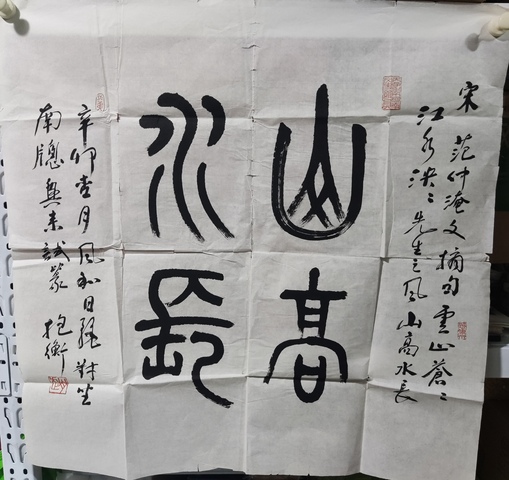 山高
水長
宋 范仲淹文摘句 雲山蒼〻
江水泱〻 先生之風 山高水長
辛卯杏月 風和日麗 對坐
南牕 興來試篆 抱衡